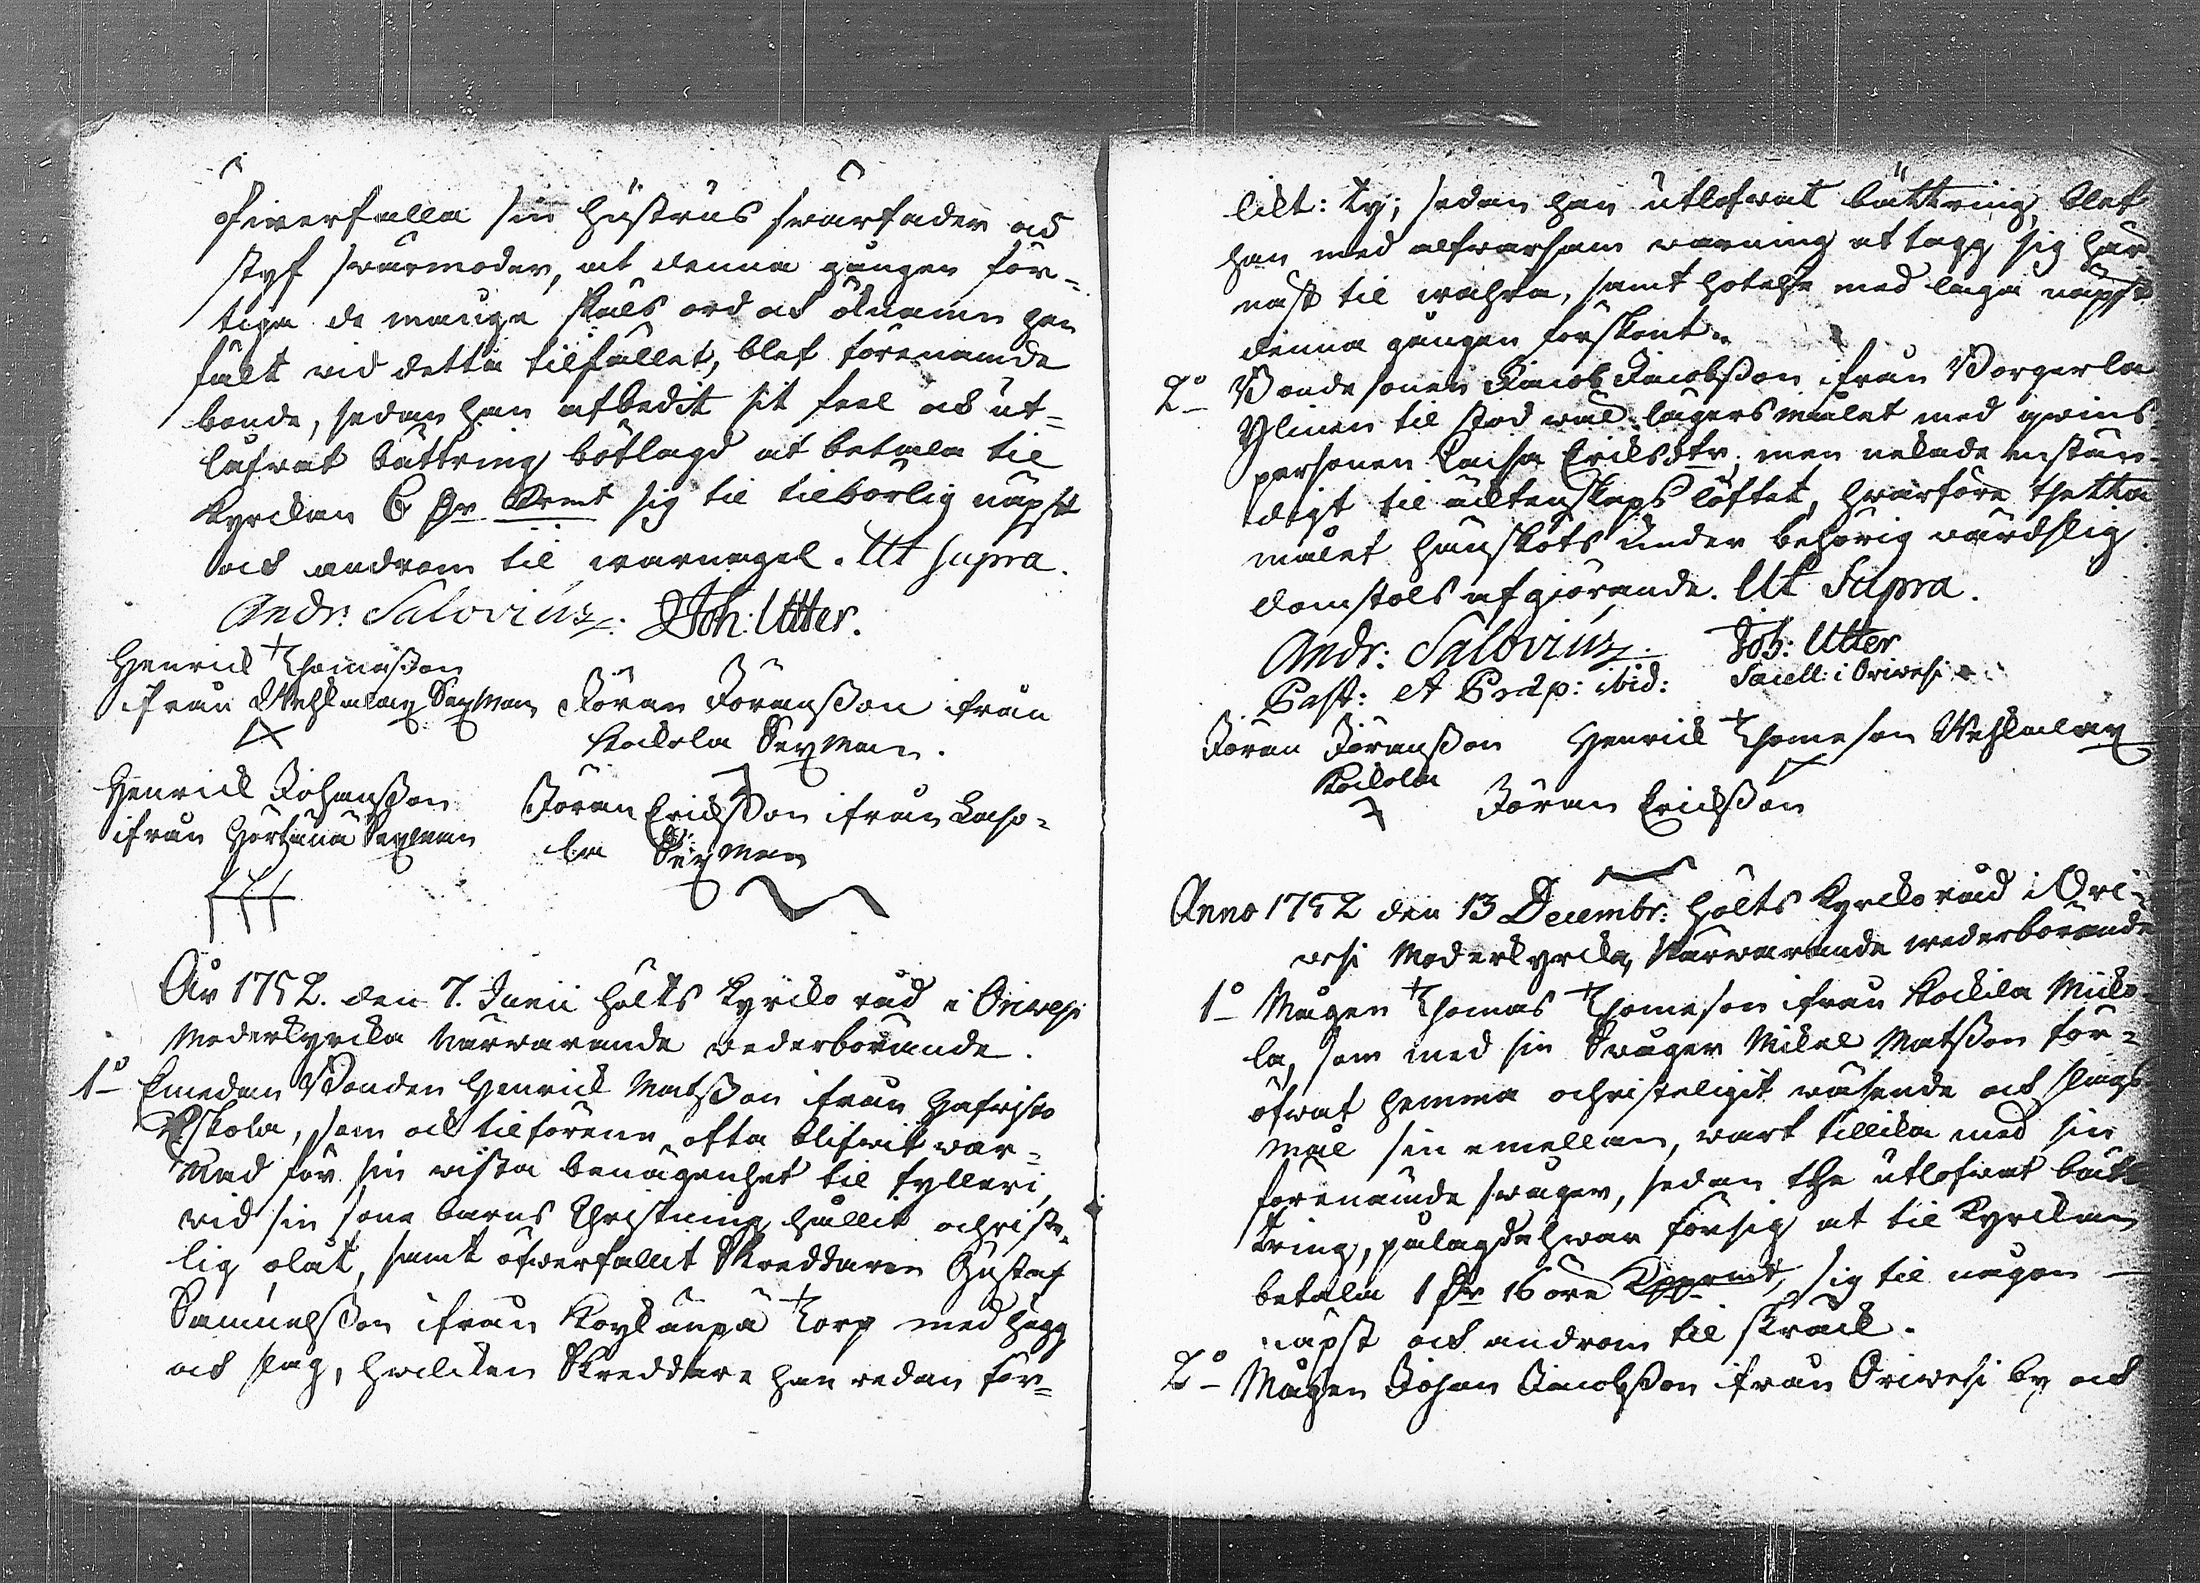 öfwerfalla sin hustrus swärfader och
styf swärmoder, at denna gången för-
tiga de månge skäls ord och öknamn han
fält vid detta tilfället, blef förenämde
bonde, sedan han afbedit sit feel och ut-
lofwat bättring bötlagd at betala til
Kyrckan 6 Dr Kmt sig til tilbörlig näpst
och androm til warnagel. Ut supra.
Andr: Salovius. Joh: Utter.
Henrick Thomasson
ifrån Wehkalax Sexman Jöran Jöransson ifrån
Kockola Sexman.
Henrick Johansson Jöran Ericksson ifrån Laso-
ifrån Sexman la Sexman
År 1752. den 7. Junii hölts Kyrcko råd i Oriwesi
Moderkyrcka Närwarande wederbörande.
1o Emedan Bonden Henrick Matsson ifrån
Eskola, som ock tilförene ofta blifwit war-
nad för sin wista benägenhet til fylleri,
vid sin sons barns Christning hållit ochriste-
lig olåt, samt öfwerfallit Skreddaren Gustaf
Samuelsson ifrån Torp med hugg
och slag, hwilcken Skreddare han redan för-
likt: Ty; sedan han utlofwat bättring, blef
han med alfwarsam warning at tagg sig här
näst til wahra, samt hotelse med laga näpst
denna gången förskont.
2o Bonde sonen Jacob Jacobsson ifrån
Ylinen til stod wäl lägersmålet med qwins-
personen Caisa Ericksdtr, men nekade enstän-
digt til äcktenskaps löftet, hwarföre thetta
målet hänsköts under behörig wärdslig
domstols afgiörande. Ut Supra.
Andr: Salovius. Joh: Utter
Past: et Præp: ibid: Sacell: i Oriwesi
Jöran Jöransson Henrick Thomeson Wehkalax
Kockola Jöran Ericksson
Anno 1752 den 13 Decembr: hölts Kyrcko råd i Ori-
wesi Moderkyrcka, Närwarande wederbörande
1o Mågen Thomas Thomeson ifrån Kockila
la, som med sin Swåger Mickel Matsson för-
öfwat hemma ochristeligit wäsende och slags
mål sin emellan, wart tillika med sin
förenämde swåger, sedan the utlofwat bätt-
tring, pålagde hwar för sig at til Kyrckan
betala 1 Dr 16 öre Koppmt, sig til någon
näpst och androm til skräck.
2o Mågen Johan Jacobsson ifrån Oriwesi by och